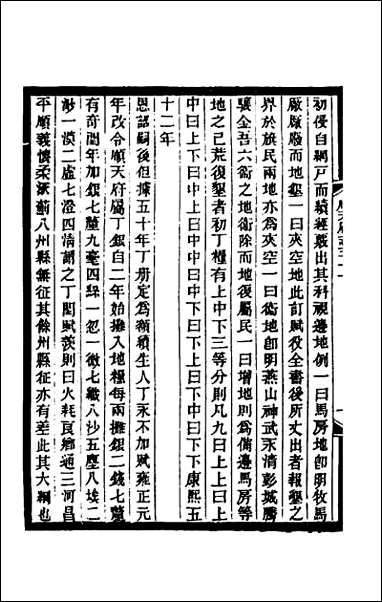 初侵自網戸而續經裁出其科視邊地例一曰馬房地卽明牧馬
廠廠廢而地墾一曰夾空地此訂賦役全書後所丈出者報墾之
界於旗民兩地亦爲夾空一曰衞地卽明燕山神武永清彭城騰
驤金吾六衞之地衞除而地後屬民一曰增地則爲備邊馬房等
地之已荒復墾者初丁糧有上中下三等分則凡九曰上上曰上
中曰上下曰中上曰中中曰中下曰下上曰下中曰下下康熙五
十二年
恩詔嗣後但據五十年丁册定爲額續生人丁永不加賦雍正元
年改令順天府屬丁銀自二年始攤入地糧每兩攤銀二錢七釐
有奇閏年加銀七釐九毫四絲一忽一微七纖八沙五塵八埃二
渺一漠二虛七澄四清謂之丁閏賦羨則曰火耗良鄉通三河昌
平順義懷柔涿薊八州縣無征其餘州縣征亦有差此其大綱也